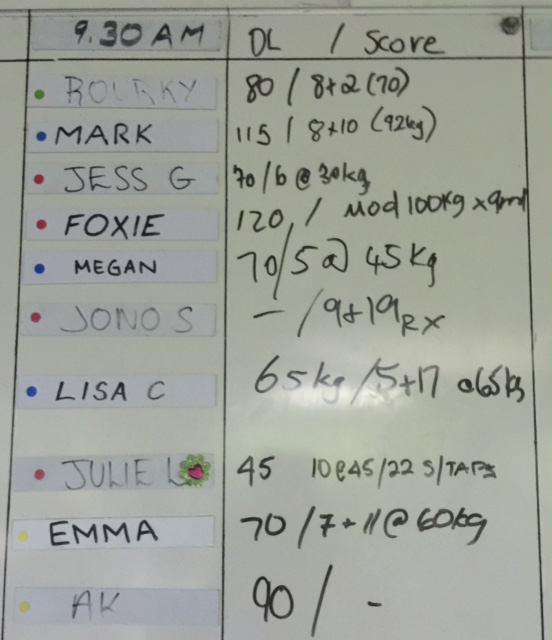 9.30 AM DL / Score
ROURKY 80 / 8+2 (70)
MARK 115 / 8+10 (92kg)
JESS G 70/6 @ 30kg
FOXIE 120 / Mod 100kg
MEGAN 70/5 @ 45kg
JONO S - / 9+19 RX
LISA C 65kg /5+17 @65kg
JULIE L 45 10@45/22 S/TAPS
EMMA 70 / 7+11 @ 60kg
AK 90 / -